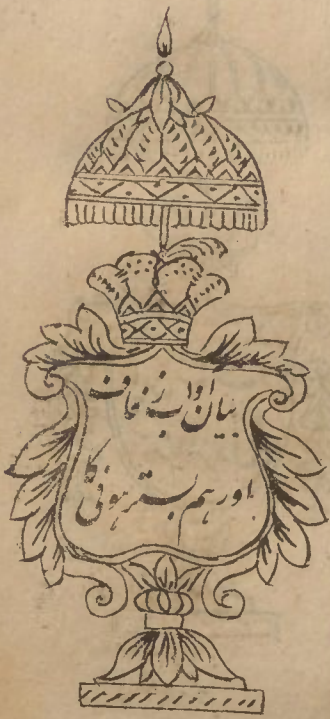 بیان اداب زفاف
اور ہم بستر ہونی کا